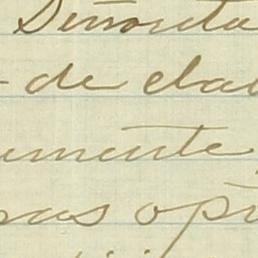 Señorita
-de elab
umente,
ras opi